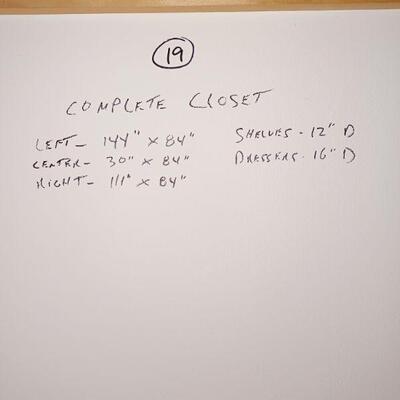 19
COMPLETE CLOSET
LEFT- 144" x 84"
CENTER- 30" x 84"
RIGHT- 111" x 84"
SHELVES - 12" D
DRESSERS - 16" D